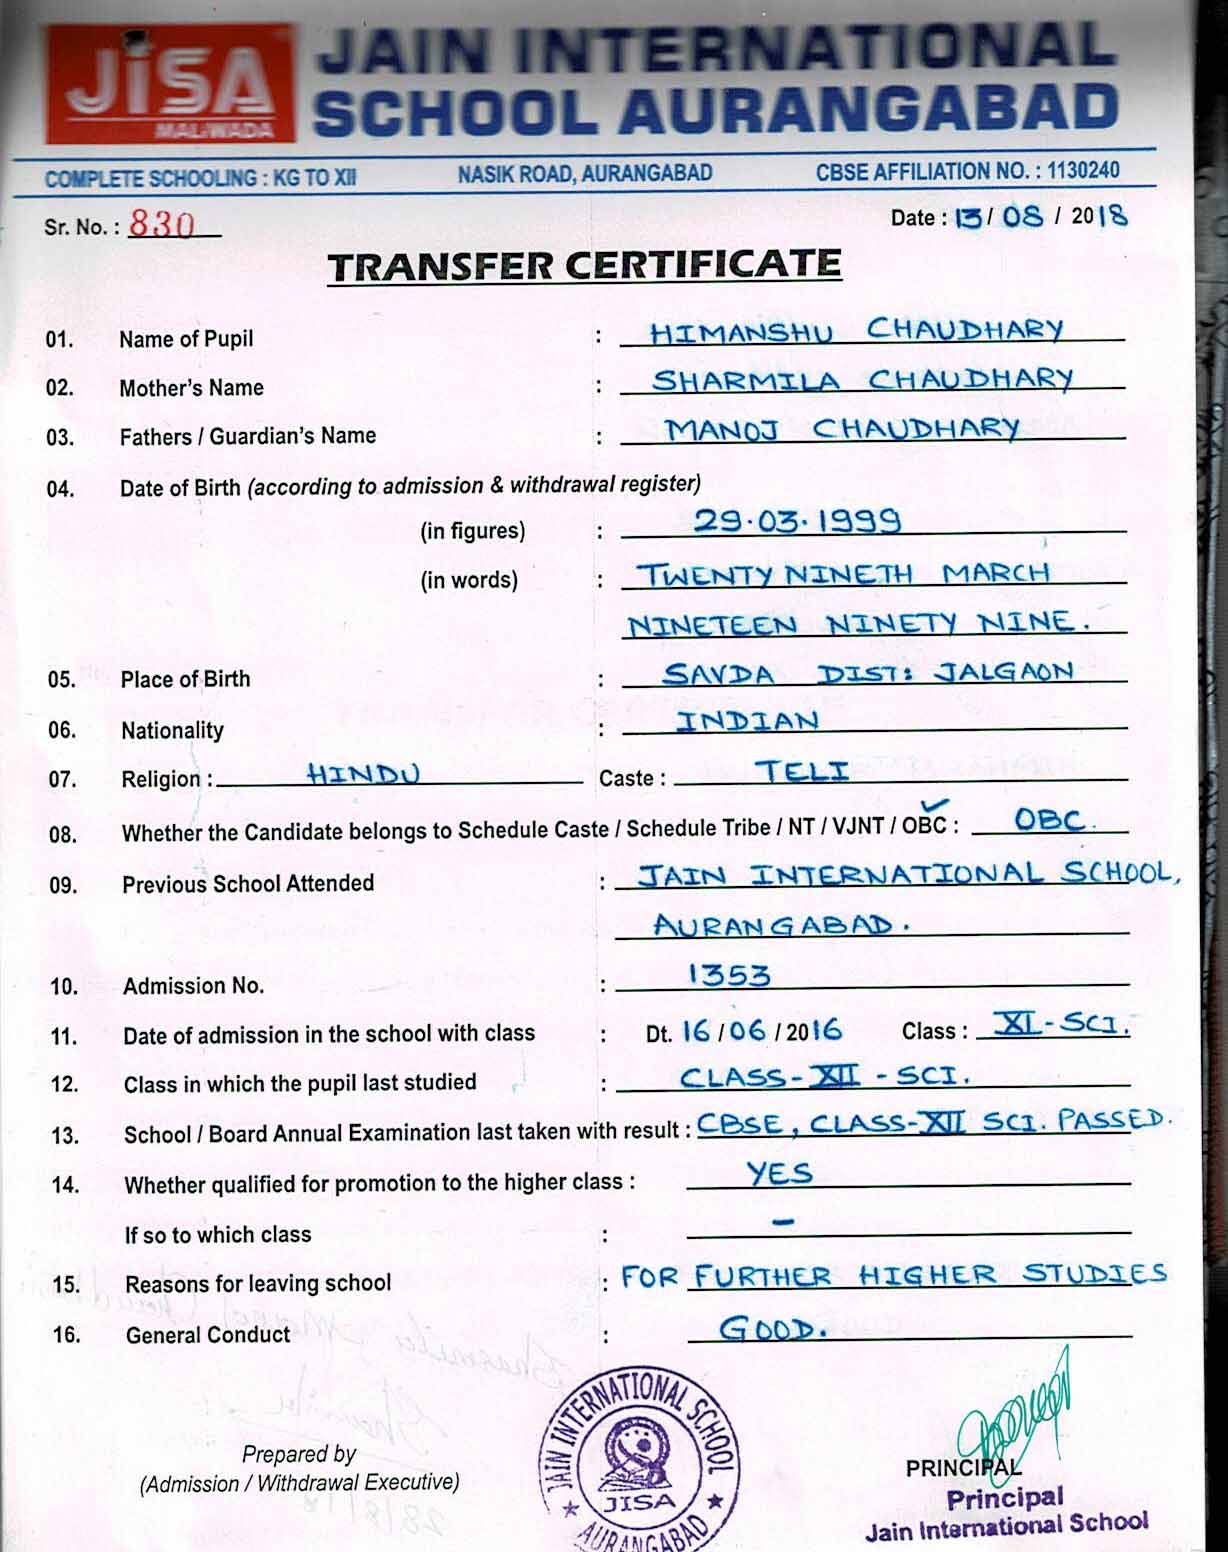 JiSA
MALIWADA
JAIN INTERNATIONAL
SCHOOL AURANGABAD
COMPLETE SCHOOLING : KG TO XII NASIK ROAD, AURANGABAD CBSE AFFILIATION NO. : 1130240
Sr. No. : 830 Date : 13 / 08 / 2018
TRANSFER CERTIFICATE
01. Name of Pupil : HIMANSHU CHAUDHARY
02. Mother's Name : SHARMILA CHAUDHARY
03. Fathers / Guardian's Name : MANOJ CHAUDHARY
04. Date of Birth (according to admission & withdrawal register)
(in figures) : 29.03.1999
(in words) : TWENTY NINETH MARCH
NINETEEN NINETY NINE.
05. Place of Birth : SAVDA DIST: JALGAON
06. Nationality : INDIAN
07. Religion : HINDU Caste : TELI
08. Whether the Candidate belongs to Schedule Caste / Schedule Tribe / NT / VJNT / OBC : OBC.
09. Previous School Attended : JAIN INTERNATIONAL SCHOOL,
AURANGABAD.
10. Admission No. : 1353
11. Date of admission in the school with class : Dt. 16 / 06 / 2016 Class : XI - SCI.
12. Class in which the pupil last studied : CLASS - XII - SCI.
13. School / Board Annual Examination last taken with result : CBSE, CLASS-XII SCI. PASSED.
14. Whether qualified for promotion to the higher class : YES
If so to which class : -
15. Reasons for leaving school : FOR FURTHER HIGHER STUDIES
16. General Conduct : GOOD.
Prepared by
(Admission / Withdrawal Executive)
JAIN INTERNATIONAL SCHOOL
JISA
AURANGABAD
PRINCIPAL
Principal
Jain International School